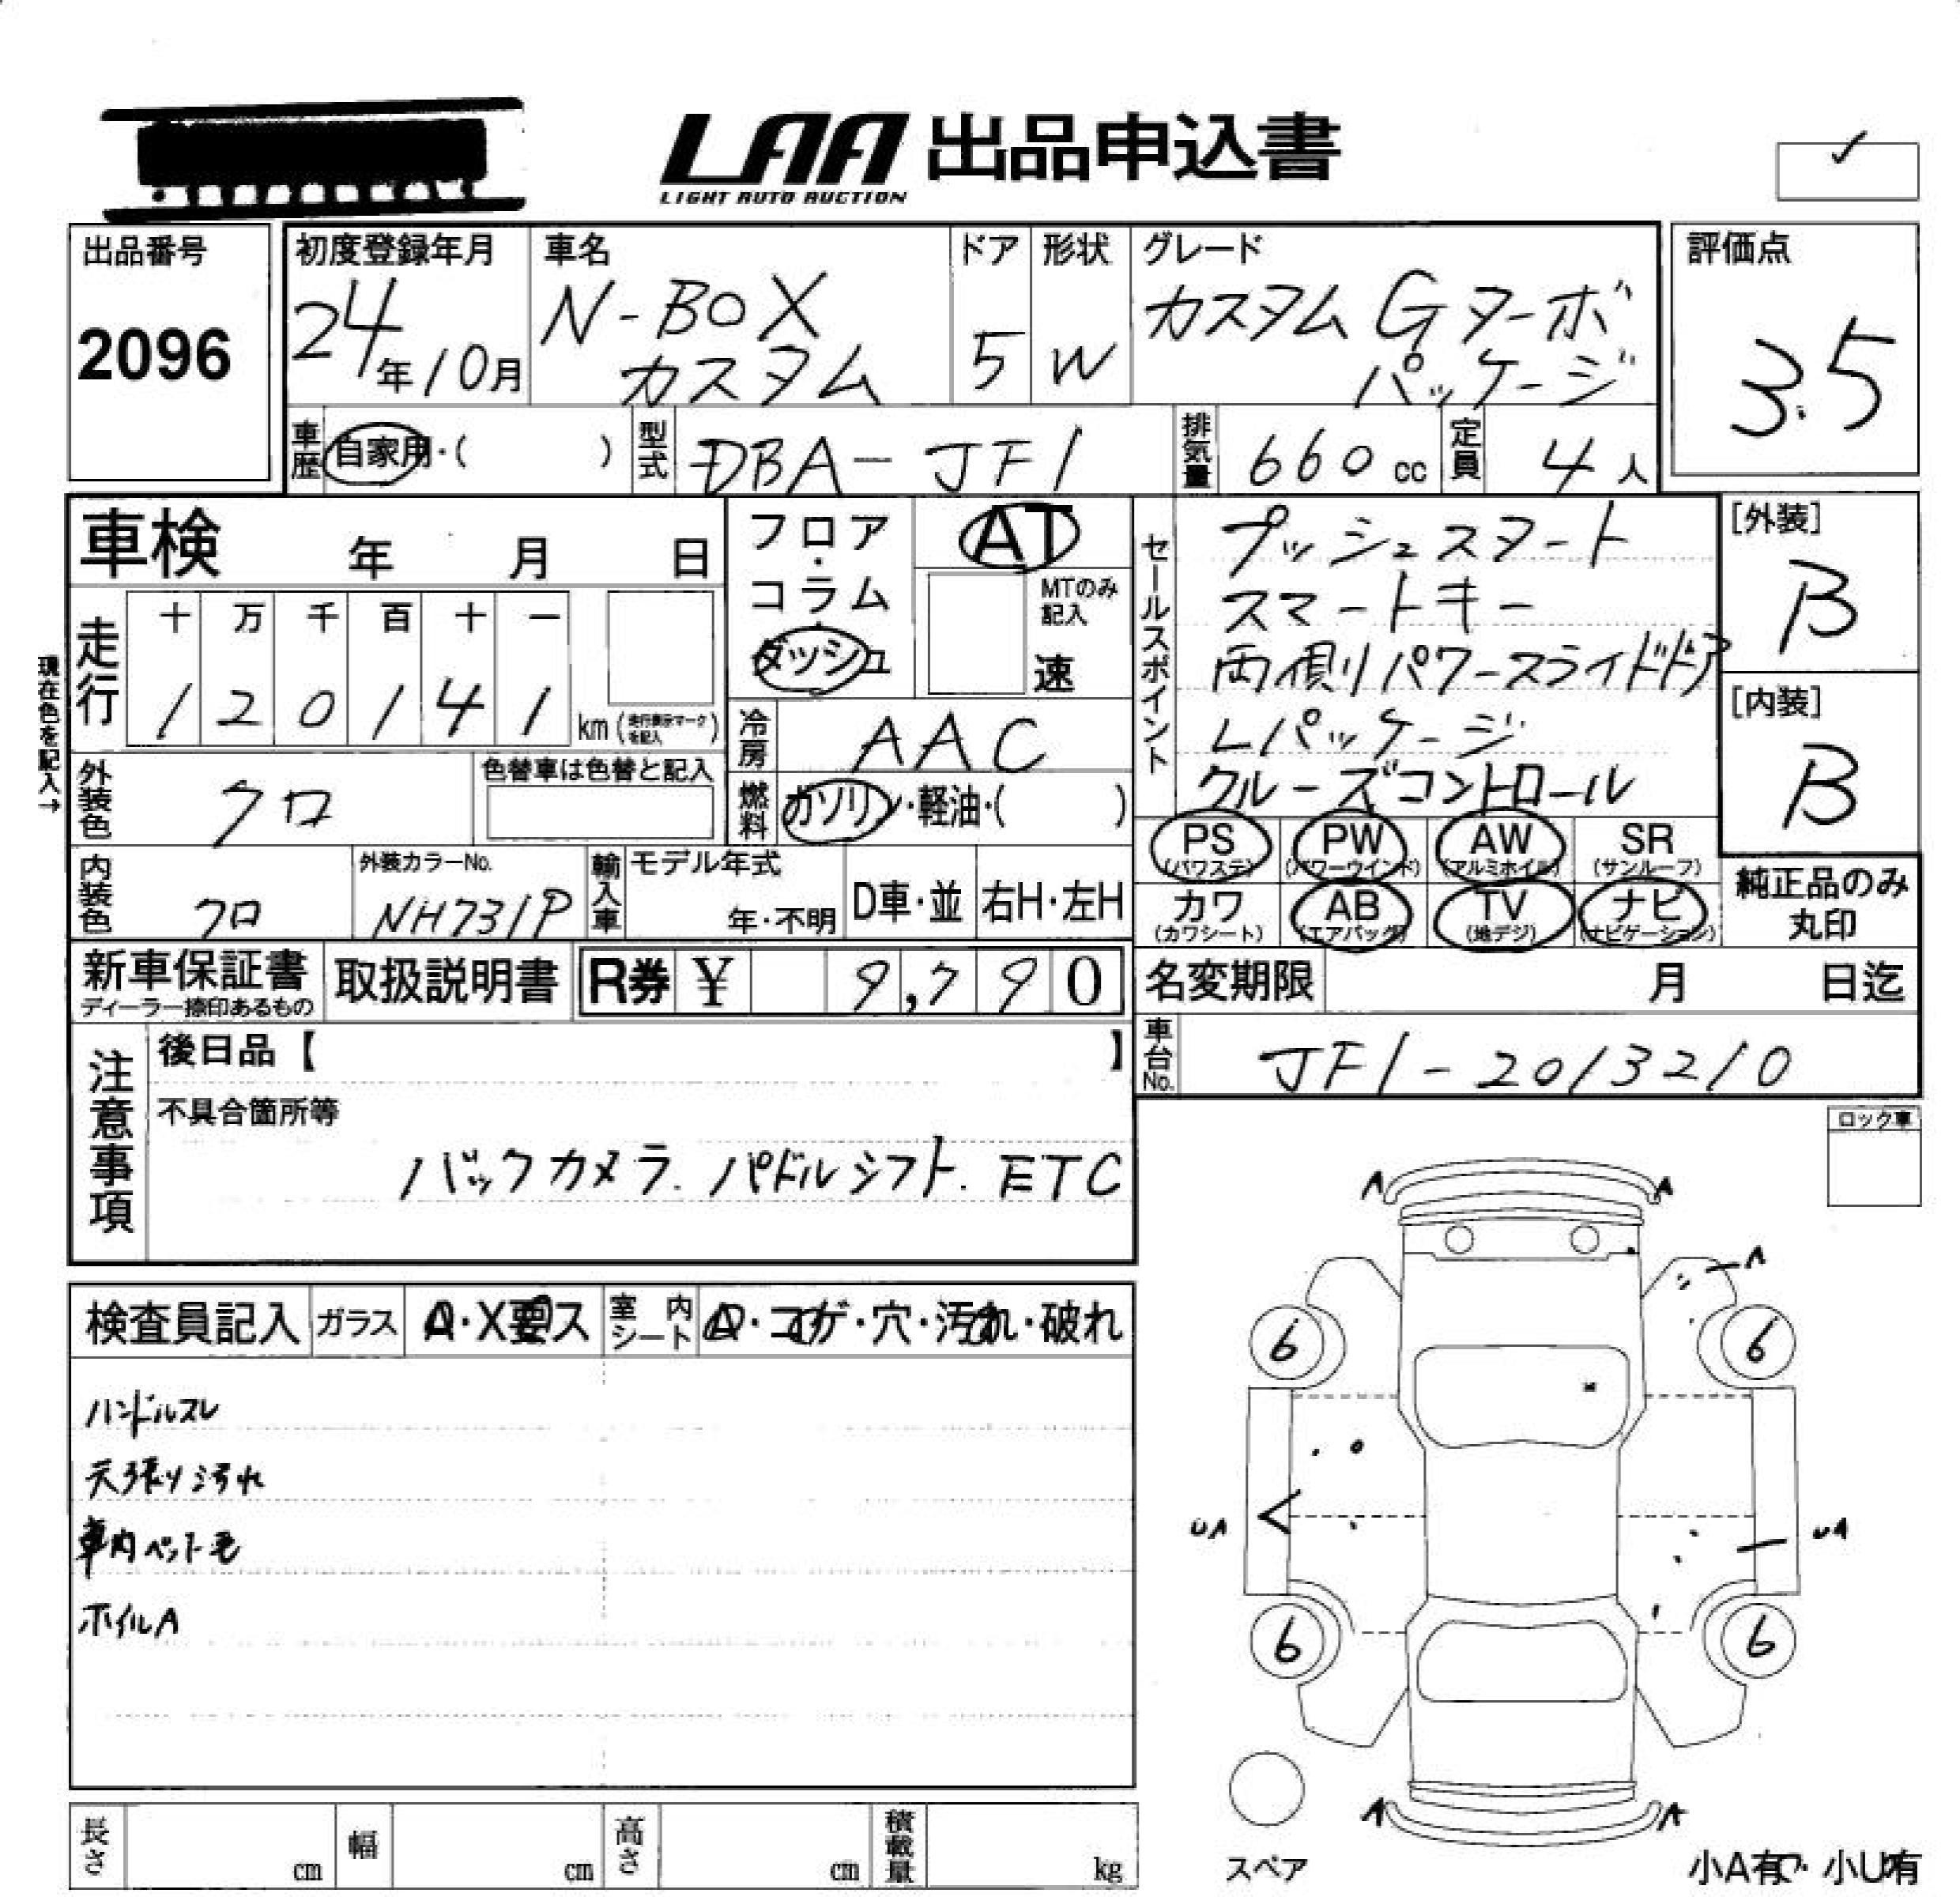 LAA 出品申込書
LIGHT AUTO AUCTION
出品番号
2096
初度登録年月
24年10月
車名
N-BOX
カスタム
ドア
5
形状
W
グレード
カスタム Gターボ
パッケージ
評価点
3.5
車歴
自家用・( )
型式
DBA-JF1
排気量
660cc
定員
4人
車検 年 月 日
フロア・コラム・ダッシュ
AT
MTのみ記入
速
セールスポイント
プッシュスタート
スマートキー
両側パワースライドドア
Lパッケージ
クルーズコントロール
[外装]
B
[内装]
B
現在色を記入→
走行
十 万 千 百 十 一
1 2 0 1 4 1
km(走行表示マークを記入)
冷房
AAC
外装色
クロ
色替車は色替と記入
燃料
ガソリン・軽油・( )
PS
(パワステ)
PW
(パワーウインド)
AW
(アルミホイル)
SR
(サンルーフ)
カワ
(カワシート)
AB
(エアバッグ)
TV
(地デジ)
ナビ
(ナビゲーション)
純正品のみ
丸印
内装色
クロ
外装カラーNo.
NH731P
輸入車
モデル年式
年・不明
D車・並
右H・左H
新車保証書
ディーラー捺印あるもの
取扱説明書
R券 ¥ 9,790
名変期限 月 日迄
車台No.
JF1-2013210
注意事項
後日品【 】
不具合箇所等
バックカメラ. パドルシフト. ETC
ロック車
検査員記入
ガラス
A・X要ス
室内シート
A・コゲ・穴・汚れ・破れ
ハンドルスレ
天張り汚れ
車内ペット毛
ホイルA
A A
A
6 6
UA UA
6 6
A A
スペア
小A有・小U有
長さ cm
幅 cm
高さ cm
積載量 kg